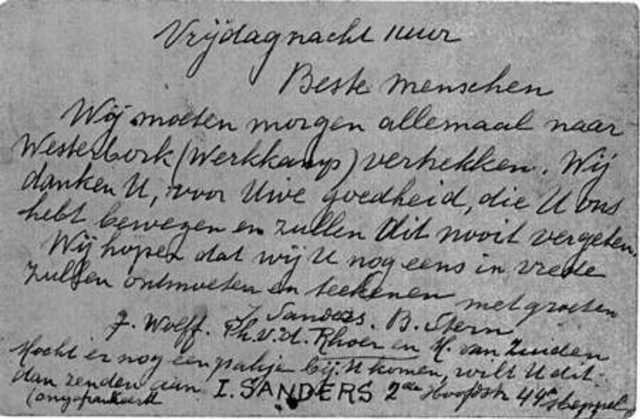 Vrijdagnacht 11 uur
Beste menschen
Wij moeten morgen allemaal naar
Westerbork (Werkkamp) vertrekken. Wij
danken U, voor Uwe goedheid, die U ons
hebt bewezen en zullen dit nooit vergeten.
Wij hopen dat wij U nog eens in vrede
zullen ontmoeten en teekenen met groeten
J. Sanders. B. Stern
J. Wolff. Ph. v. d. Rhoer en M. van Zuiden
Mocht er nog een pakje bij U komen, wilt U dit
dan zenden aan I. SANDERS 2de Hoofdstr 44a Meppel
(ongefrankeerd